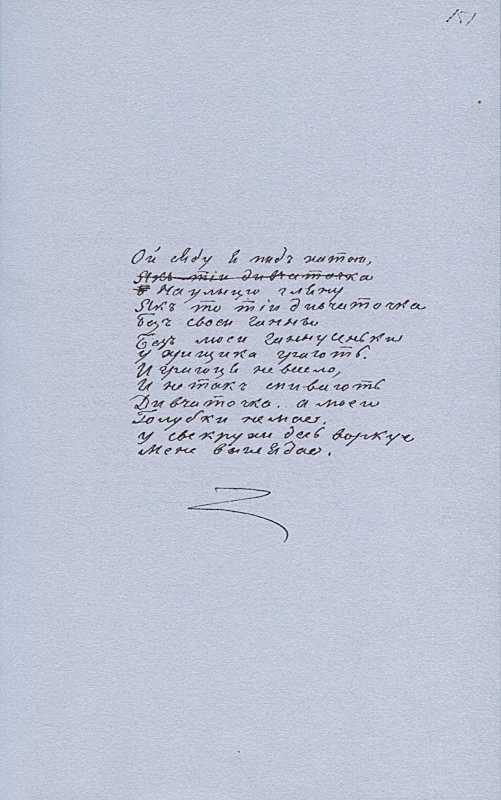 151
Ой сяду я пидъ хатою,
Якъ тіи дивчаточка
На улыцю гляну
Якъ то тіи дивчаточка
Безъ своеи Ганны
Безъ моеи Ганнусеньки
У хрищика граютъ.
И граюцьця не весело,
И не такъ спиваютъ
Дивчаточка. а моеи
Голубки не мае.
У свекрухи десь воркуе
Мене выглядае.